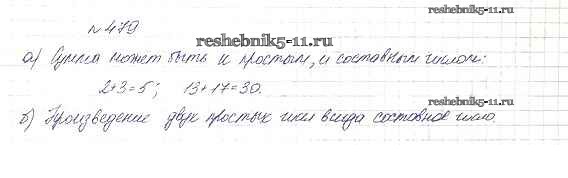 №479
reshebnik5-11.ru
а) Сумма может быть и простым, и составным числом:
2+3=5; 13+17=30.
reshebnik5-11.ru
б) Произведение двух простых чисел всегда составное число.
reshebnik5-11.ru